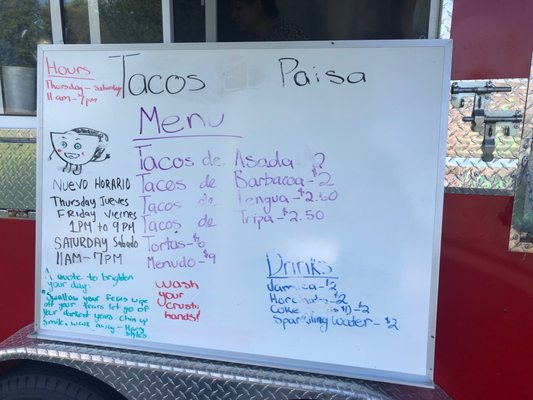 Hours
Thursday - Saturday
11am - 7pm
Tacos Paisa
Menu
Tacos de Asada 2
Tacos de Barbacoa - $2
Tacos de Lengua - $2.50
Tacos de Tripa - $2.50
Tortas - $6
Menudo - $9
NUEVO HORARIO
THURSDAY Jueves
FRIDAY Viernes
1PM to 9PM
SATURDAY Sabado
11AM - 7PM
A quote to brighten
your day:
Swallow your fears wipe
off your tears let go of
your darkest years chin up
smile, walk away - Harry
styles
wash
your
crusty
hands!
Drinks
Jamaica - $2
Horchata - $2
Coke - $2
Sparkling water - $2